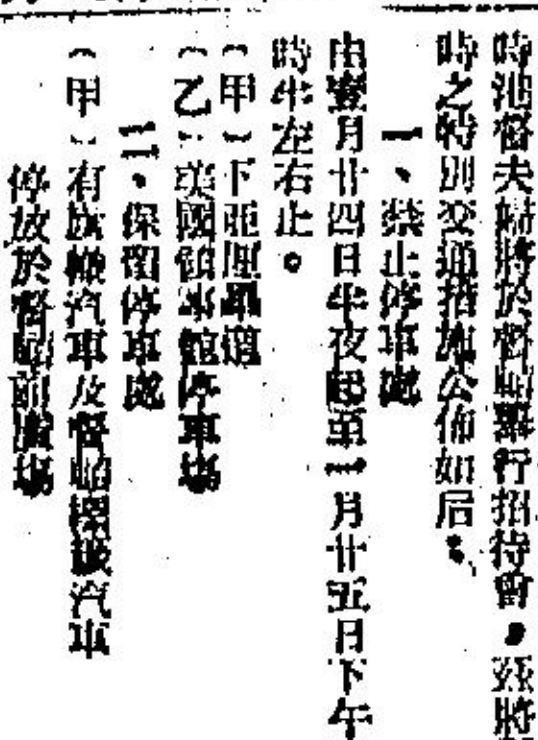 時港督夫婦將於督轅舉行招待會，茲將
時之特別交通措施公佈如后：
一、禁止停車處
由壹月廿四日半夜起至一月廿五日下午
時半左右止。
（甲）下亞厘畢道
（乙）美國領事館停車場
二、保留停車處
（甲）有旗幟汽車及督轅標識汽車
停放於督轅前廣場